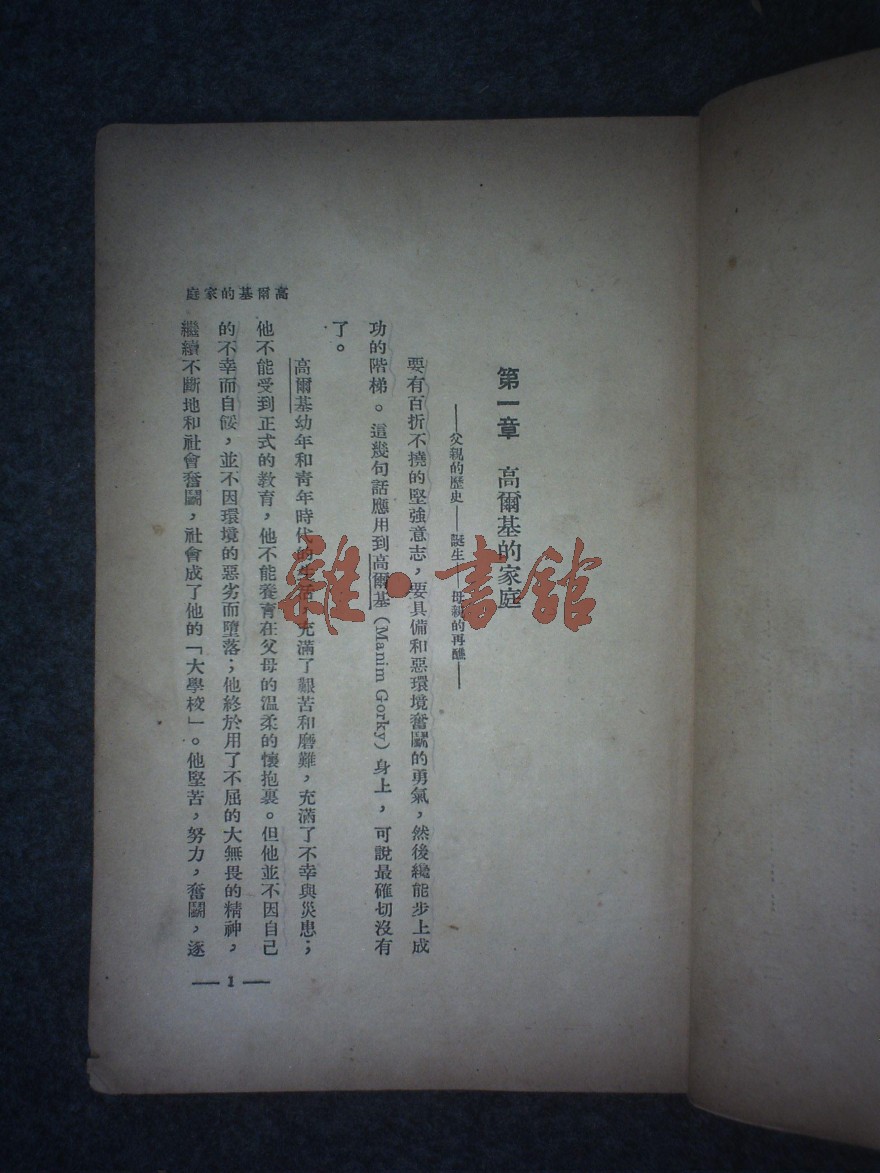 第一章 高爾基的家庭
——父親的歷史——誕生——母親的再醮——
要有百折不撓的堅強意志，要具備和惡環境奮鬭的勇氣，然後纔能步上成
功的階梯。這幾句話應用到高爾基（Manim Gorky）身上，可說最確切沒有
了。
高爾基幼年和靑年時代的生活，充滿了艱苦和磨難，充滿了不幸與災患；
他不能受到正式的教育，他不能養育在父母的溫柔的懷抱裏。但他並不因自己
的不幸而自餒，並不因環境的惡劣而墮落；他終於用了不屈的大無畏的精神，
繼續不斷地和社會奮鬭，社會成了他的「大學校」。他堅苦，努力，奮鬭，逐
庭家的基爾高
— 1 —
雜·書館